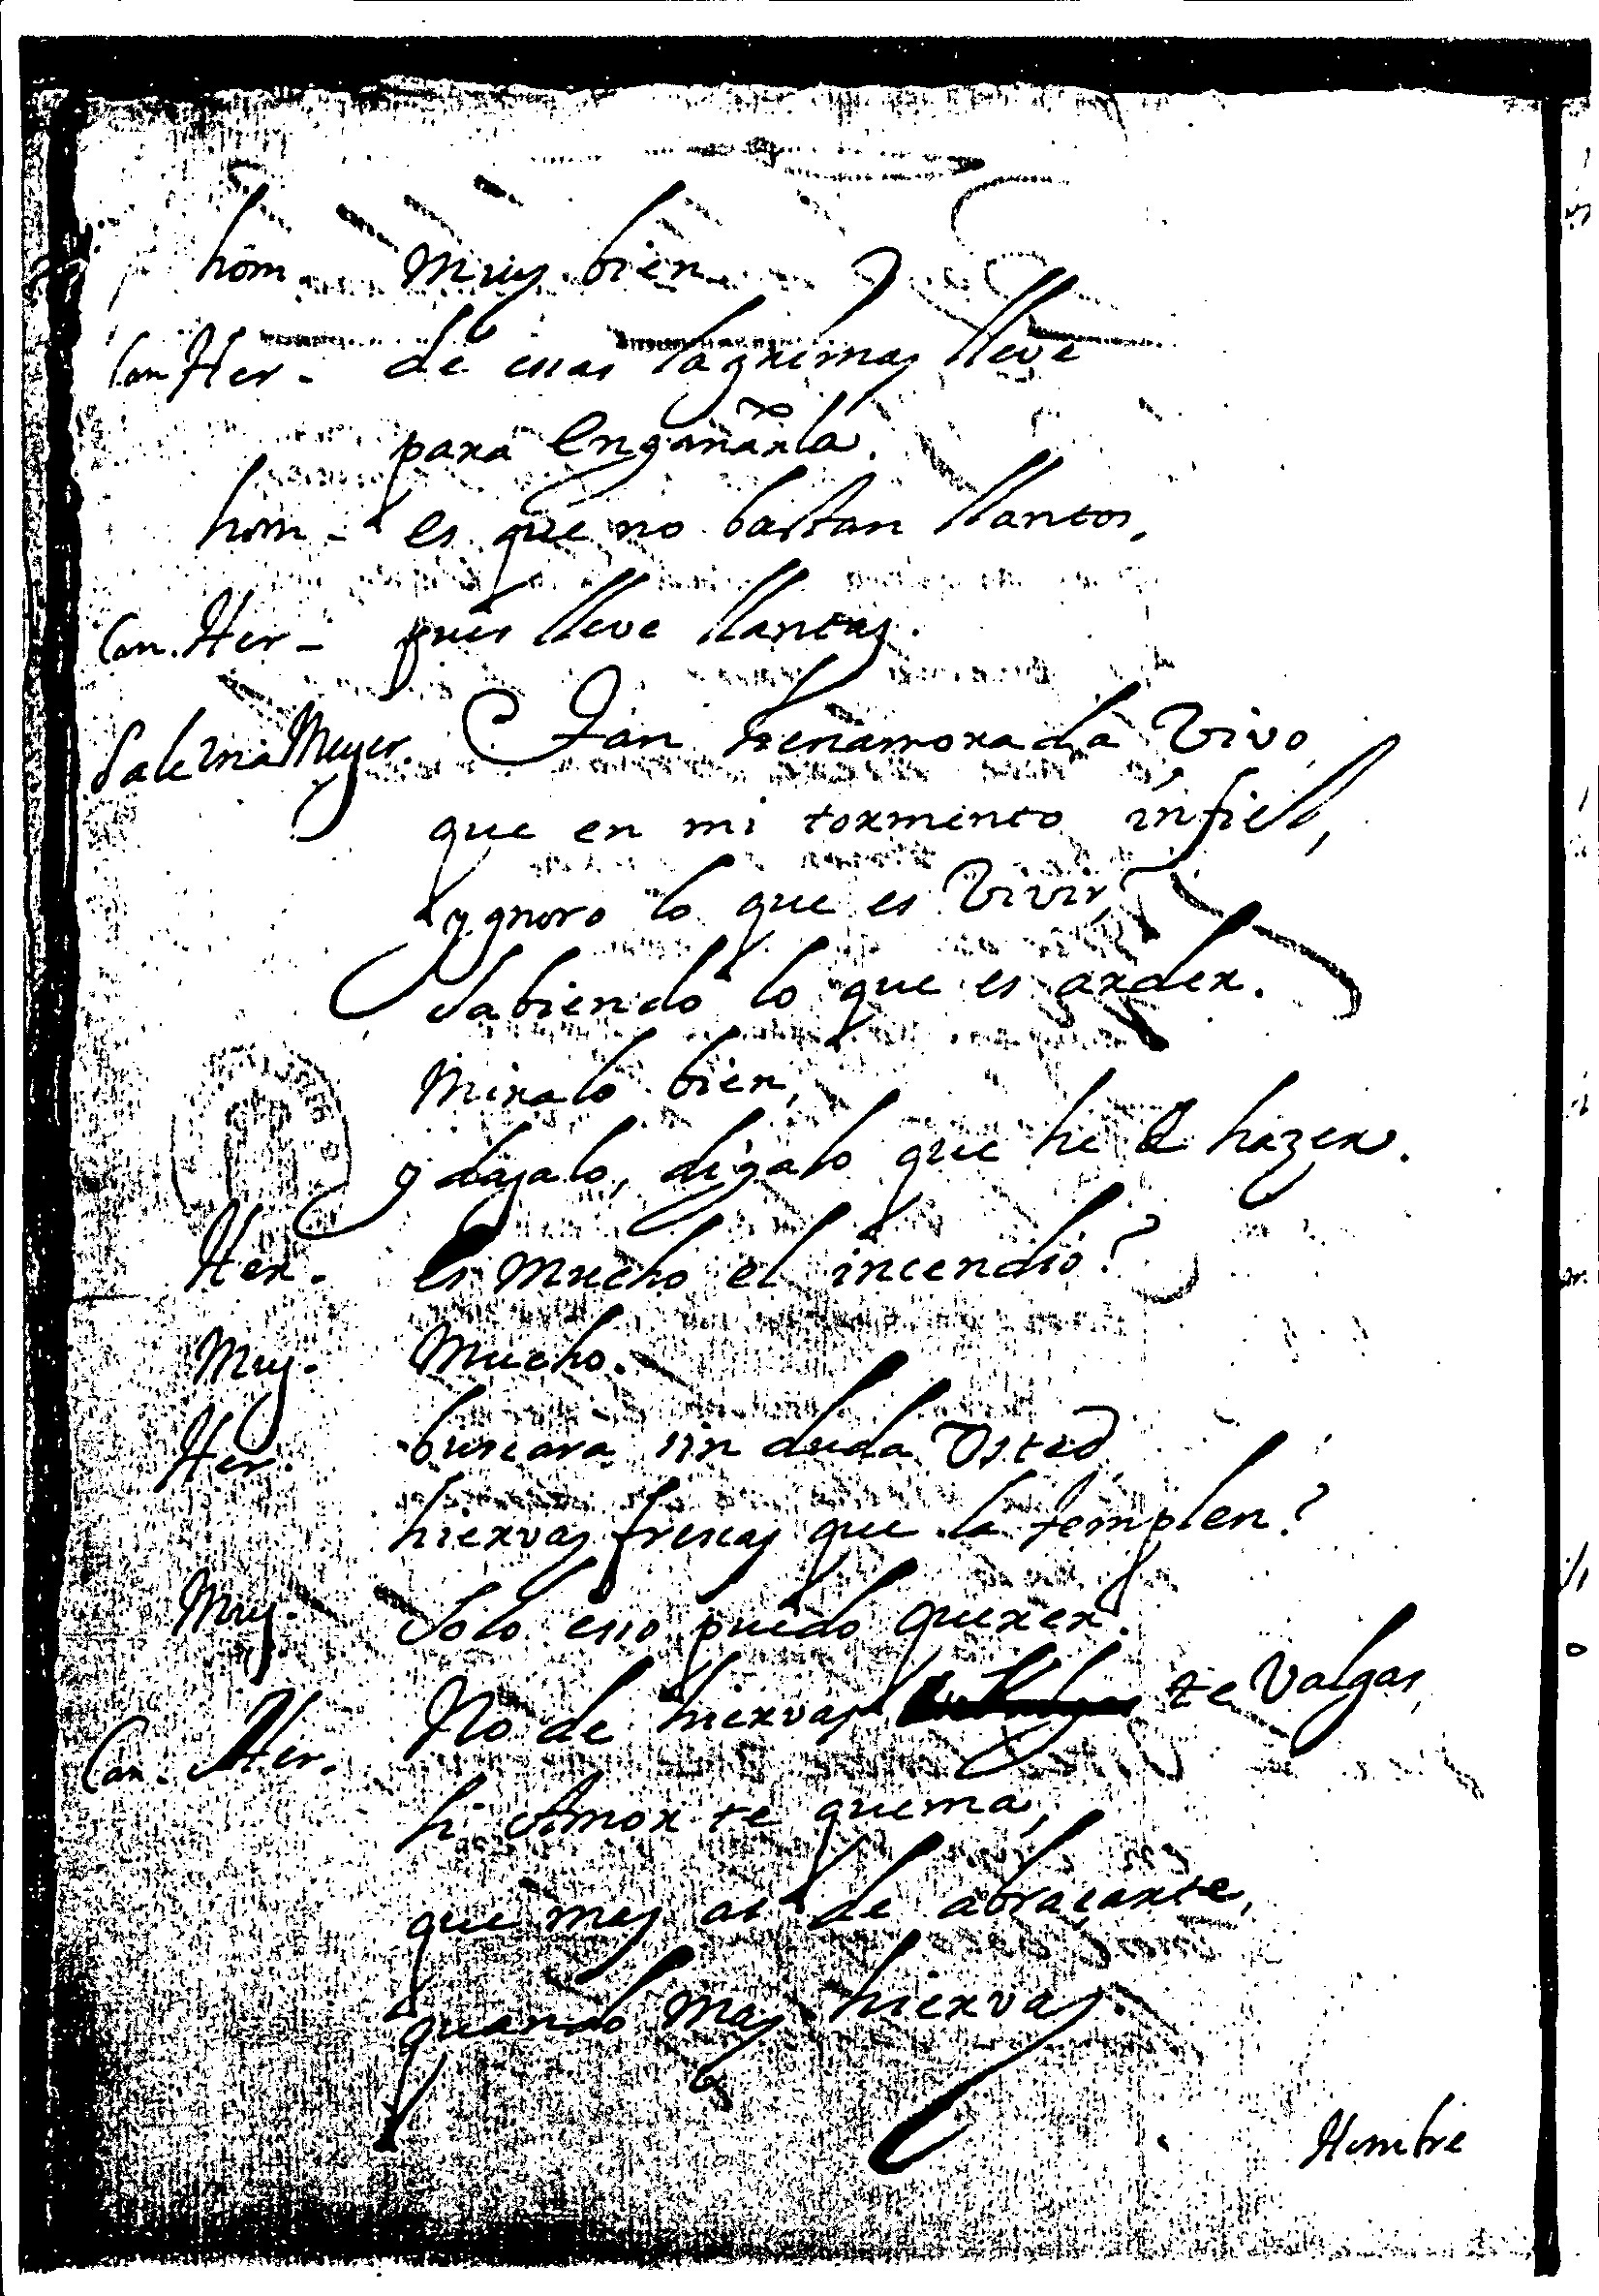 hom. Muy bien
Can. Her - de essas lagrimas lleve
para engañarla.
hom - es que no bastan llantos,
Can. Her - pues lleve llantas.
Sale Vna Muger. Tan henamorada Vivo,
que en mi tormento infiel,
ygnoro lo que es Vivir,
Sabiendo lo que es arder.
Miralo bien,
y dígalo que he de hazer.
Her. Es Mucho el incendio?
Mug. Mucho.
Her. buscara sin duda Vsted
hiervas frescas que la templen?
Mug. Solo esso puedo querer.
Can. Her. No de hiervas te Valgas,
si Amor te quema,
que mas as de abraçarte,
quando mas hiervas.
Hombre